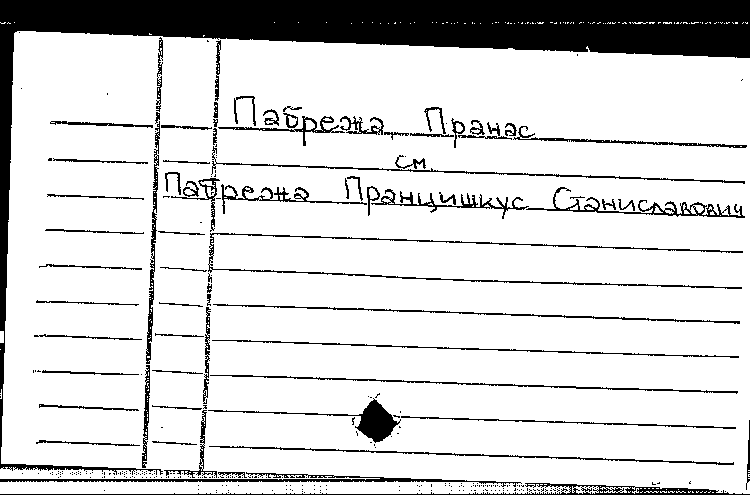 Пабрежа, Пранас
см.
Пабрежа Пранцишкус Станиславович